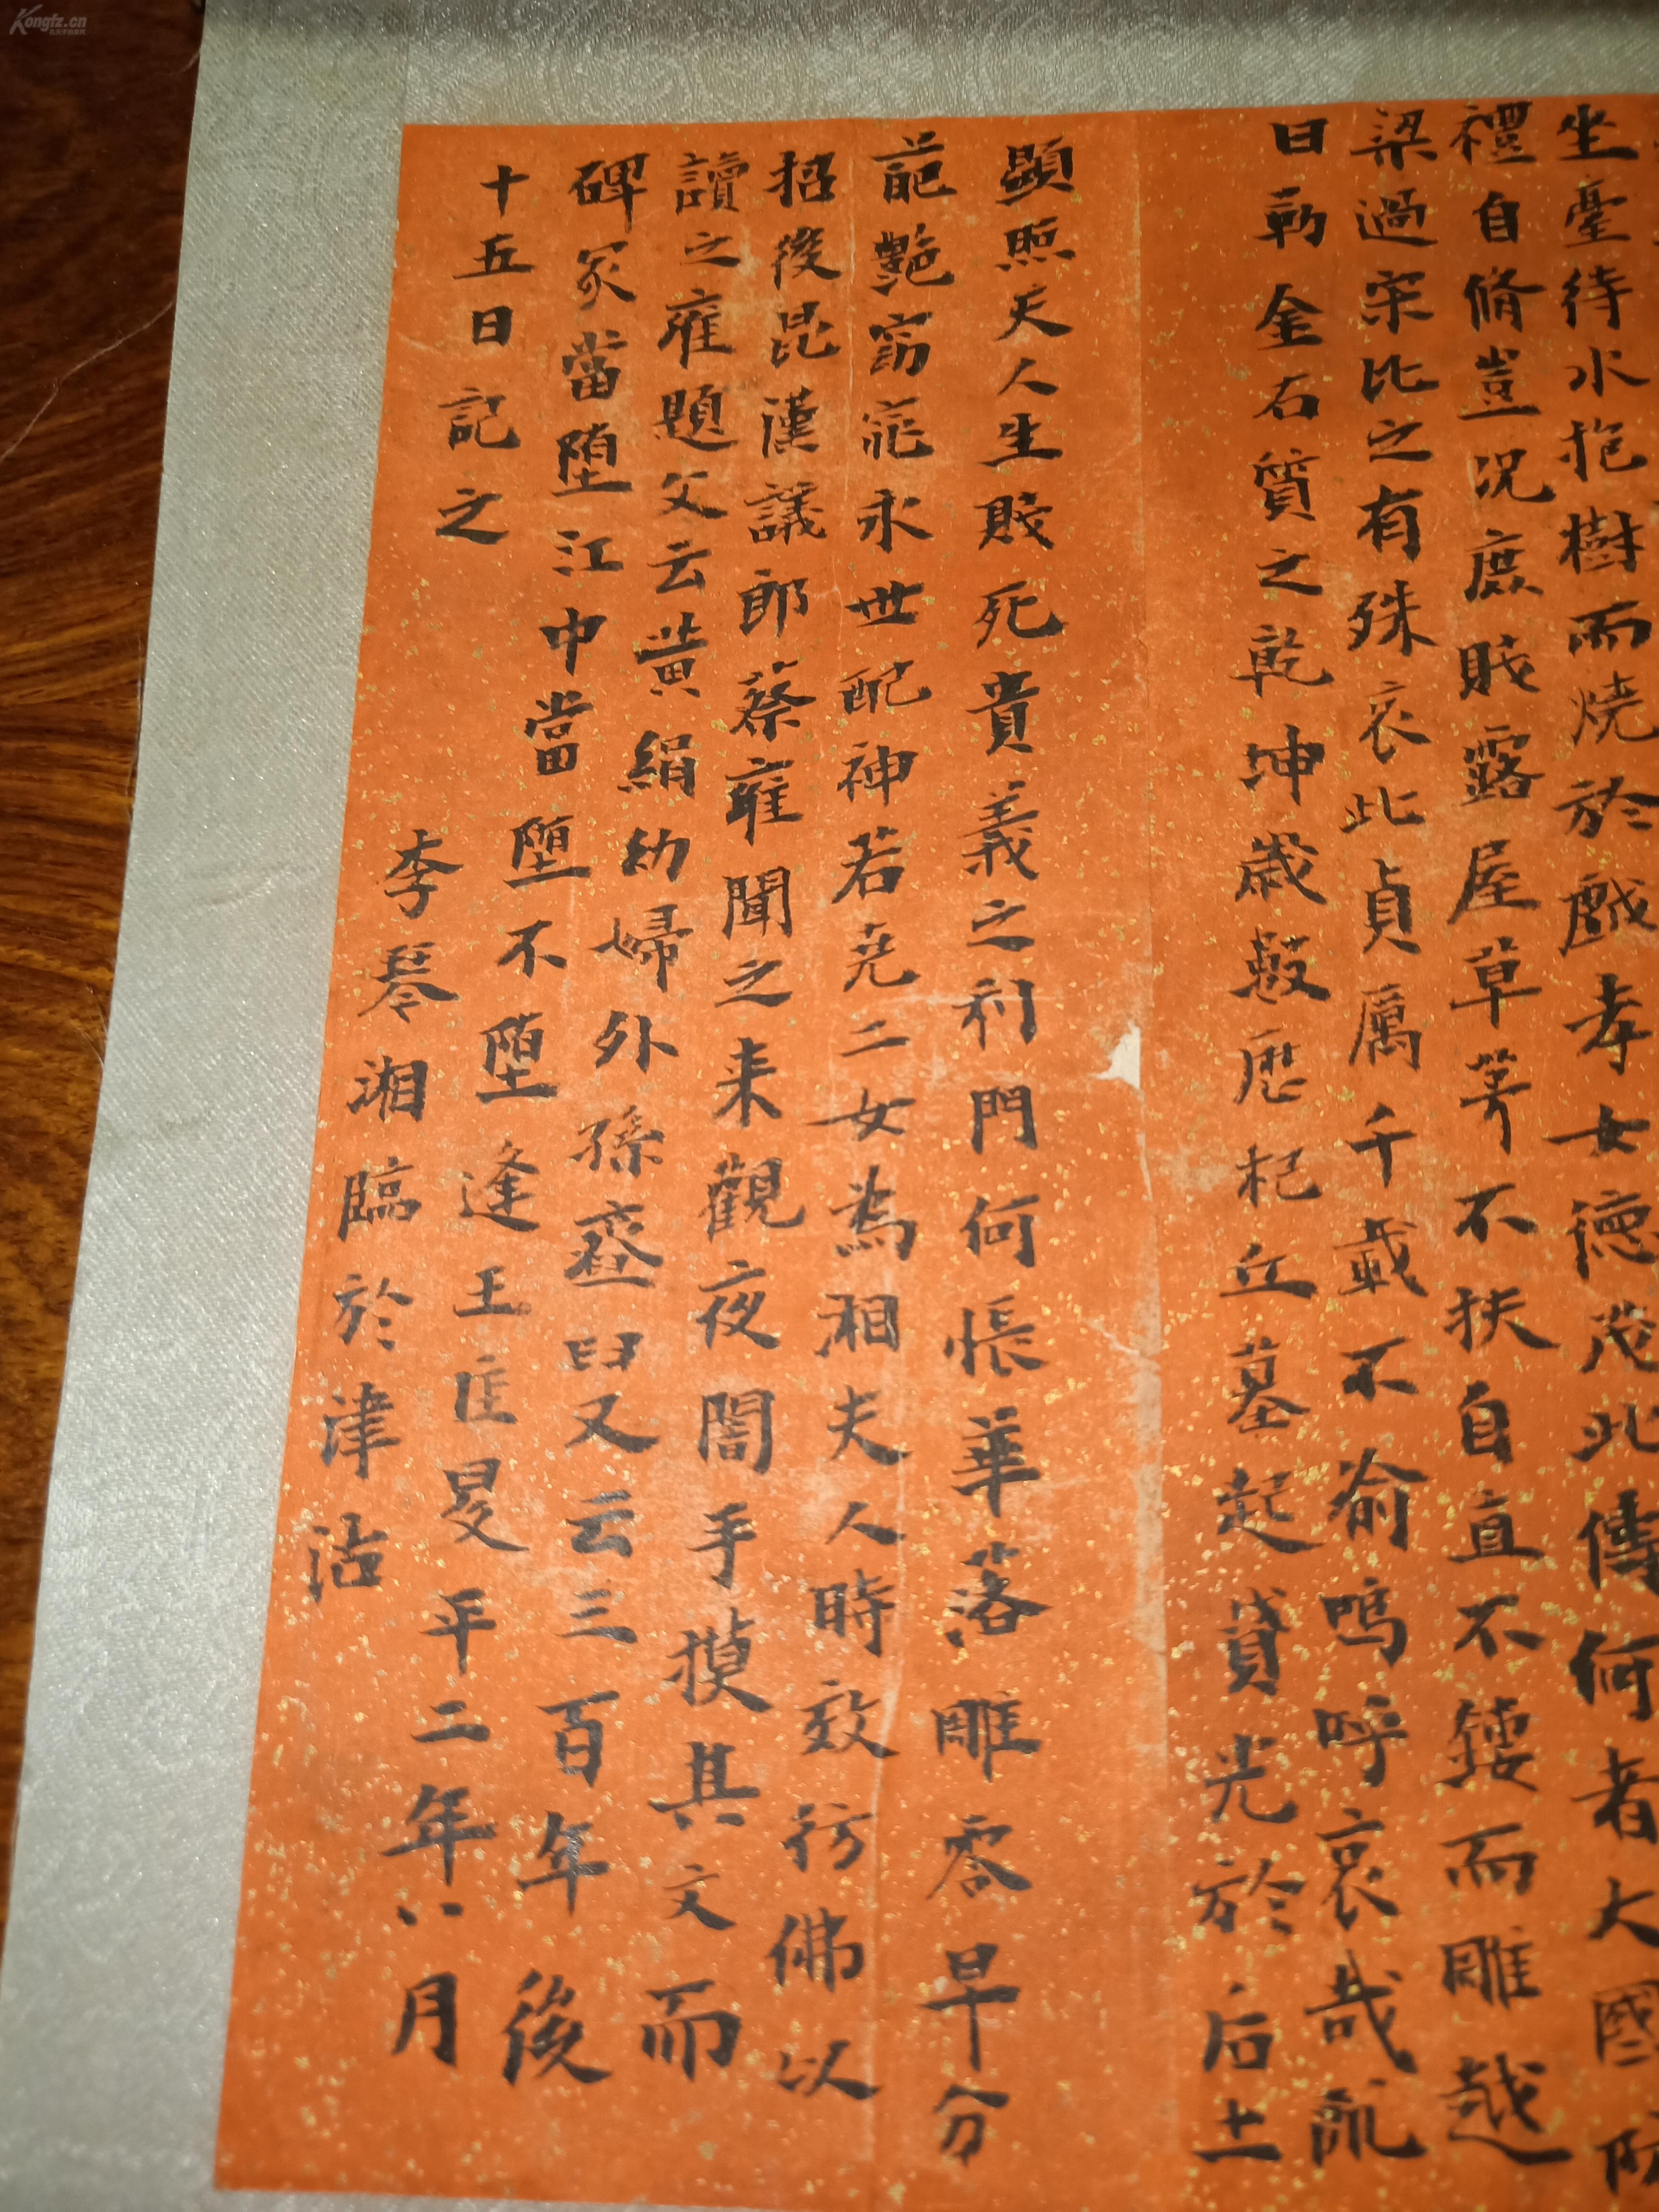 坐臺待水抱樹而燒於戲孝女德茂此儔何者大國防
禮自脩豈況庶賤露屋草茅不扶自直不鏤而雕越
梁過宋比之有殊哀此貞厲千載不渝嗚呼哀哉亂
曰勒金石質之乾坤歲數歷杞丘墓起賁光於后土
顯照天人生賤死貴義之利門何悵華落雕零早分
葩艷窈窕永世配神若堯二女為湘夫人時效彷佛以
招後昆漢議郎蔡雍聞之来觀夜闇手摸其文而
讀之雍題文云黃絹幼婦外孫齏臼又云三百年後
碑冢當堕江中當堕不堕逢王匡昇平二年八月
十五日記之
李琴湘臨於津沽
Kongfz.cn